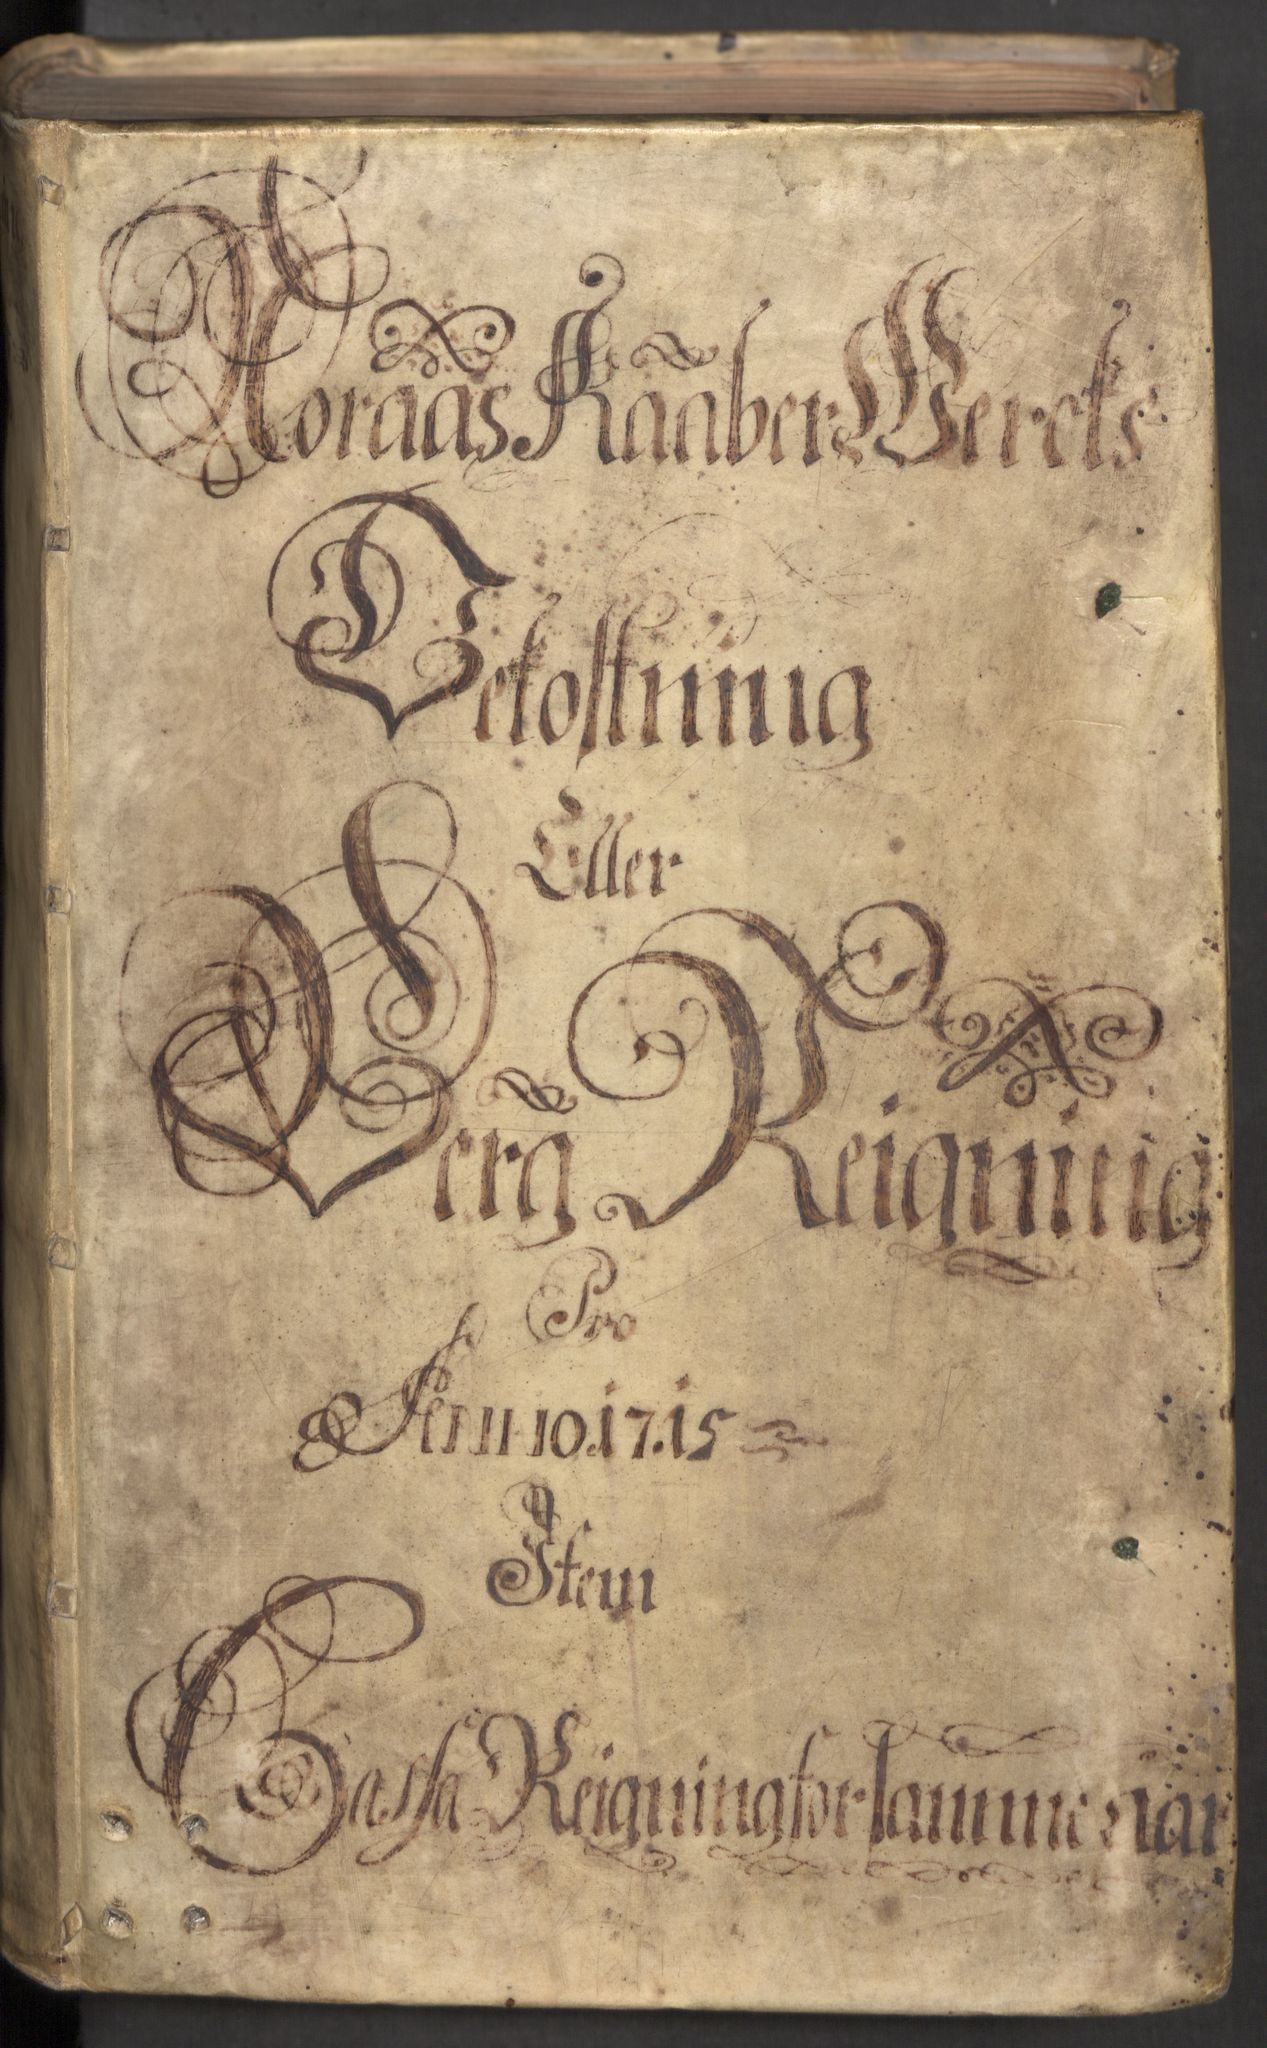 Roraas Kaaber Wercks
Bekostning
Eller
Berg Reigning
Pro
Anno 1715
Item
Cassa Reigning for samme aar